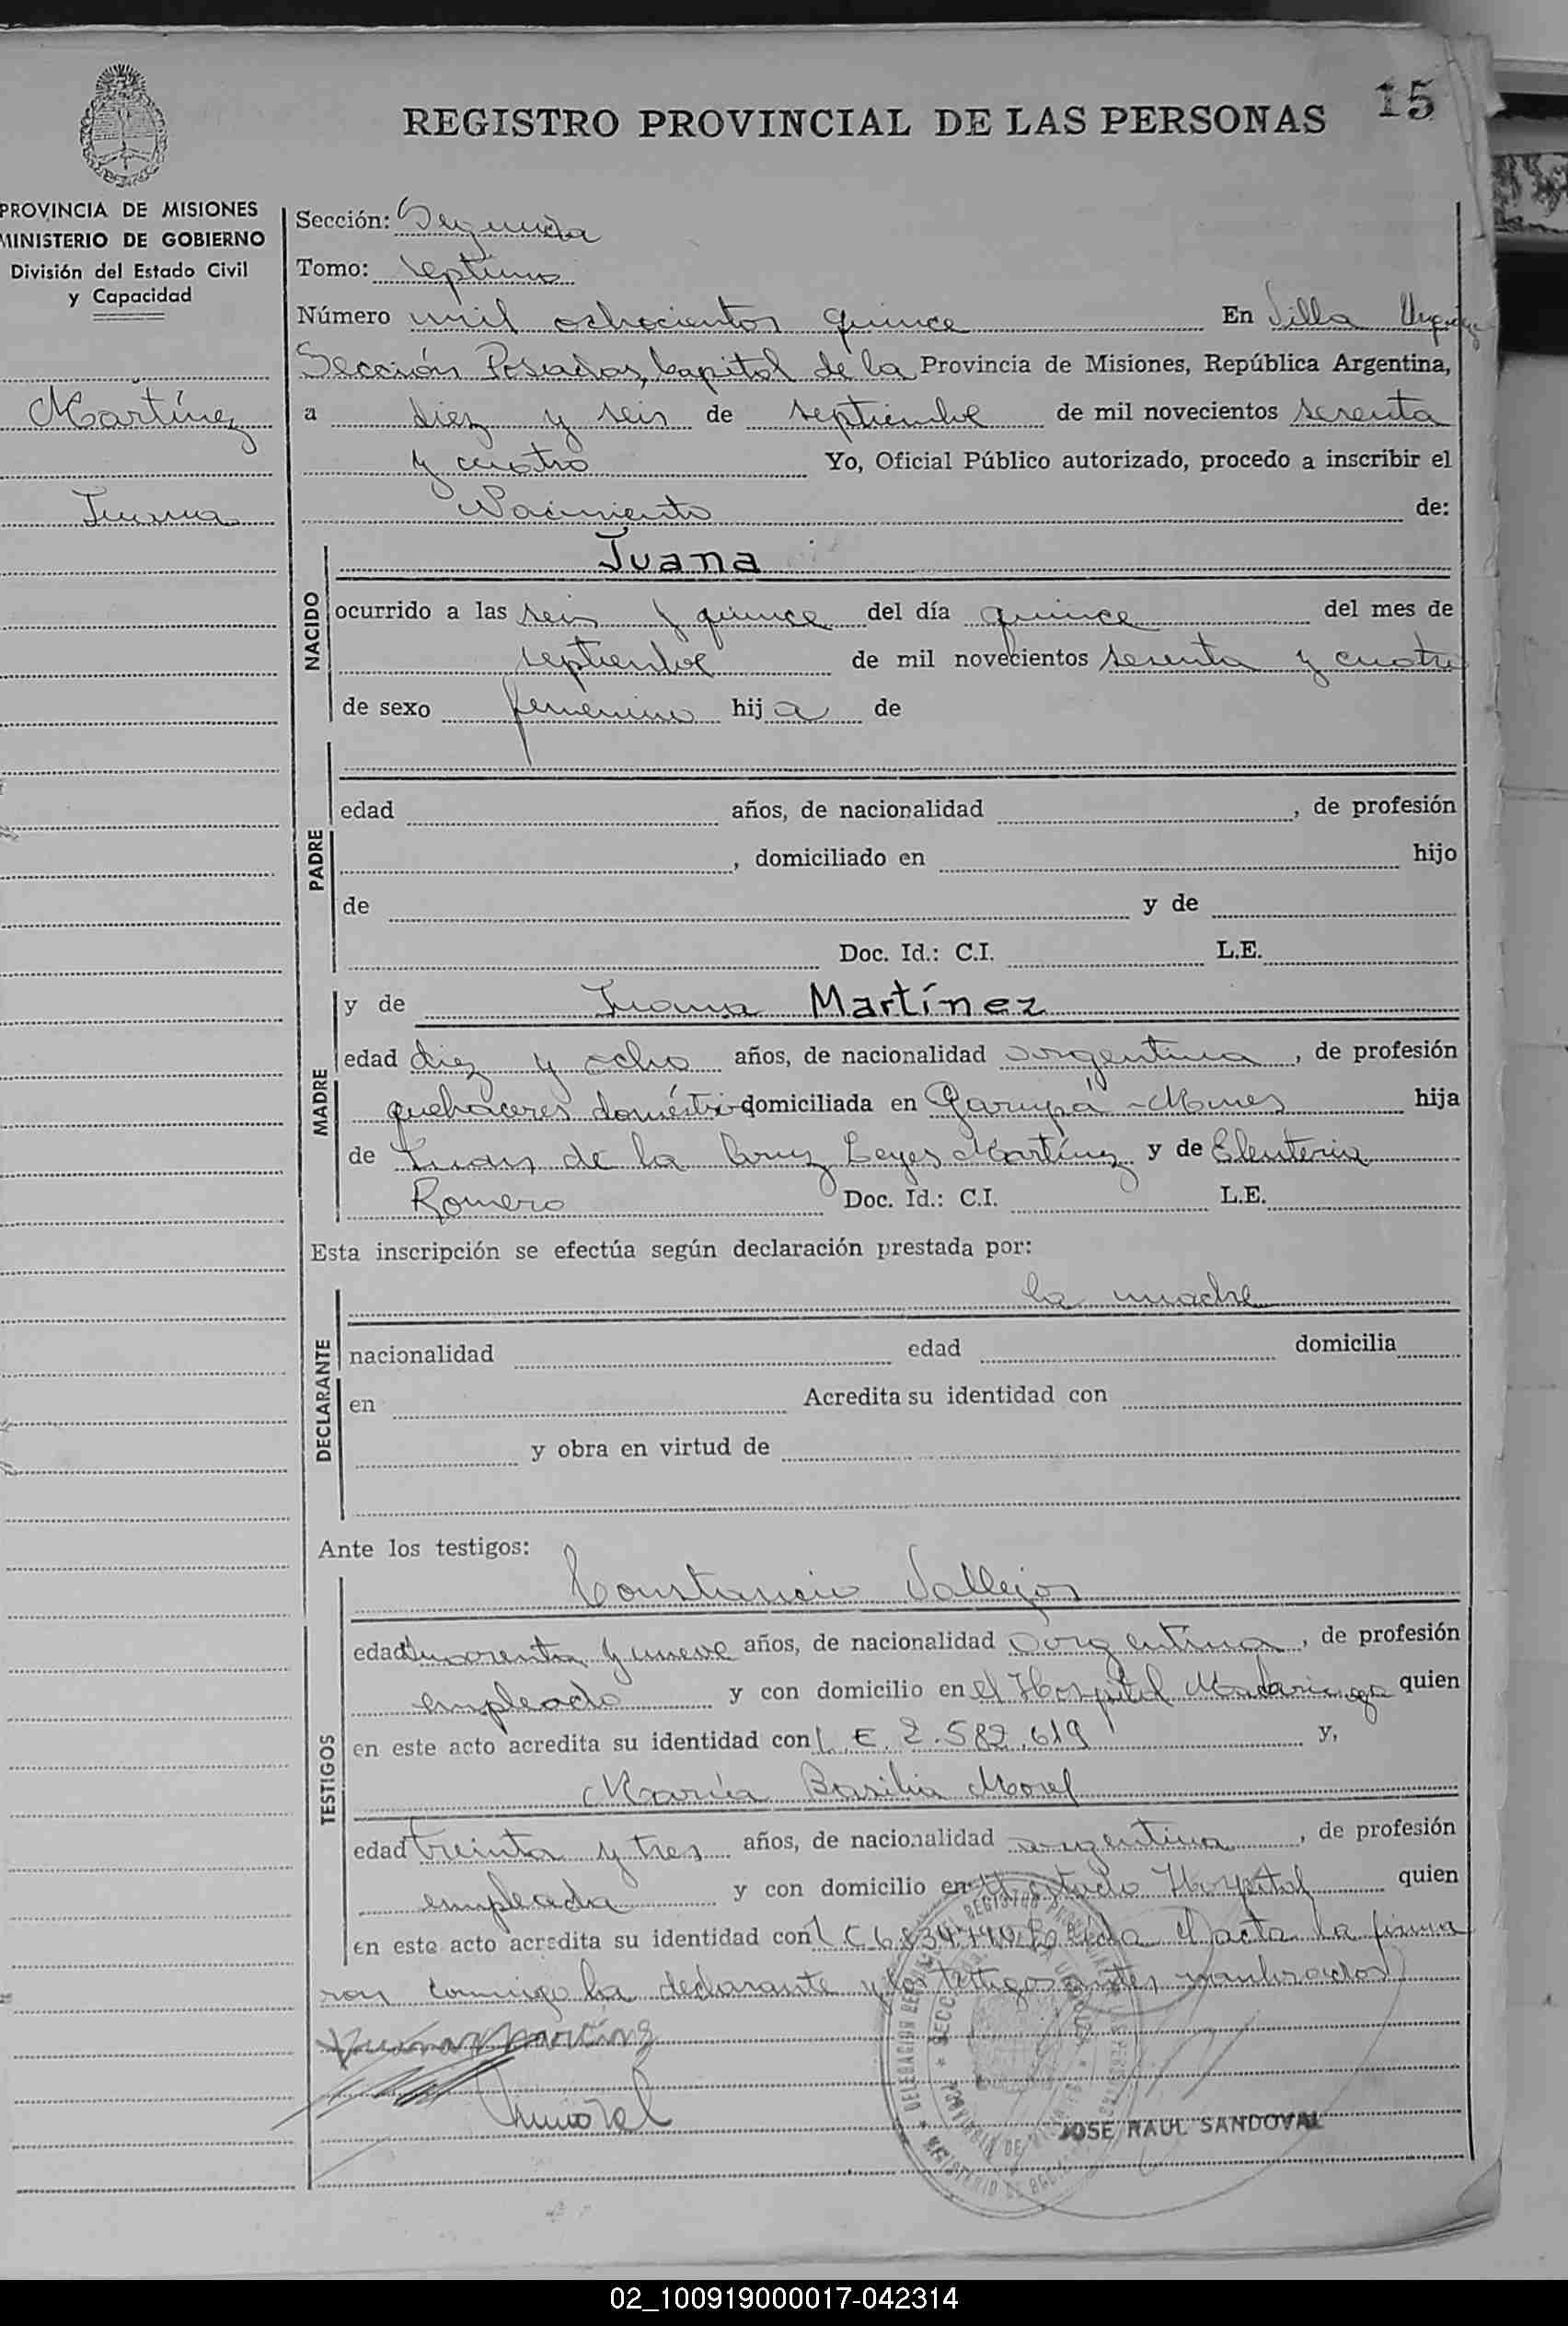 15
REGISTRO PROVINCIAL DE LAS PERSONAS
PROVINCIA DE MISIONES
MINISTERIO DE GOBIERNO
División del Estado Civil
y Capacidad
Martínez
Juana
Sección: Segunda
Tomo: septimo
Número mil ochocientos quince En Villa Urquiza
Sección Posadas, Capital de la Provincia de Misiones, República Argentina,
a diez y seis de septiembre de mil novecientos sesenta
y cuatro Yo, Oficial Público autorizado, procedo a inscribir el
Nacimiento de:
NACIDO
Juana
ocurrido a las seis y quince del día quince del mes de
septiembre de mil novecientos sesenta y cuatro
de sexo femenino hija de
PADRE
edad años, de nacionalidad , de profesión
, domiciliado en hijo
de y de
Doc. Id.: C.I. L.E.
MADRE
y de Juana Martínez
edad diez y ocho años, de nacionalidad argentina, de profesión
quehaceres doméstico domiciliada en Garupá - Mnes hija
de Juan de la Cruz Leyes Martínez y de Eleuteria
Romero Doc. Id.: C.I. L.E.
Esta inscripción se efectúa según declaración prestada por:
DECLARANTE
la madre
nacionalidad edad domicilia
en Acredita su identidad con
y obra en virtud de
Ante los testigos:
TESTIGOS
Constancio Vallejos
edad cuarenta y nueve años, de nacionalidad argentina, de profesión
empleado y con domicilio en el Hospital Madariaga quien
en este acto acredita su identidad con L.E. 2.582.619 y,
María Basilia Morel
edad treinta y tres años, de nacionalidad argentina, de profesión
empleada y con domicilio en el citado Hospital quien
en este acto acredita su identidad con L C Leída el acta la firma
ron conmigo la declarante y los testigos antes nombrados
Juana Martinez
JOSE RAUL SANDOVAL
02_100919000017-042314